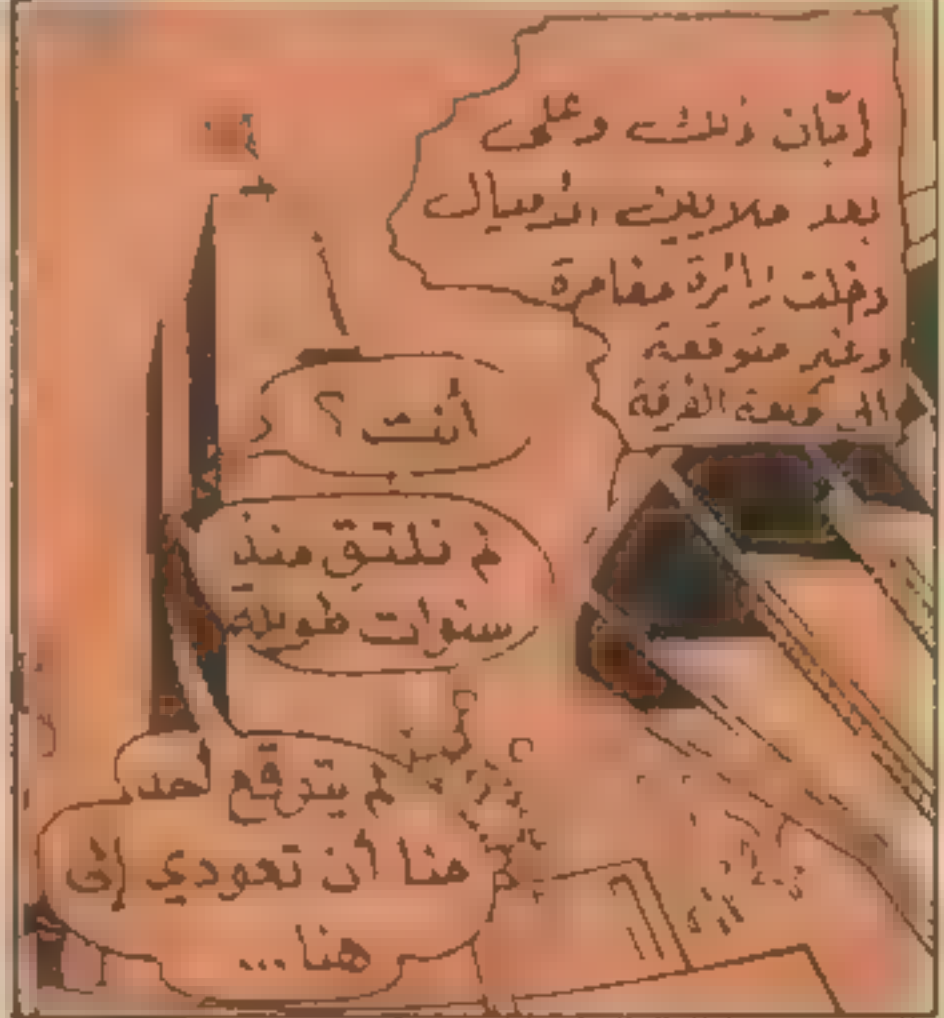 إبّان ذلك وعلى
بعد ملايين الأميال
دخلت زائرة مغامرة
وغير متوقعة
الفرقة
أنت؟
لم نلتق منذ
سنوات طويلة
لم يتوقع أحد
هنا أن تعودي إلى
هنا...